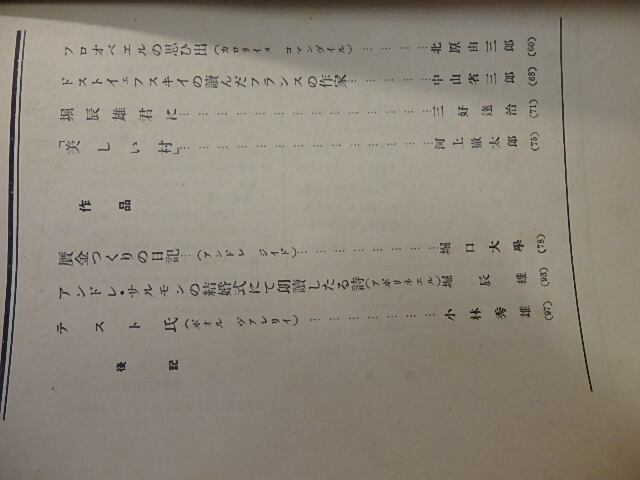 フロオベエルの思ひ出(カロリイヌ コマンヴイル)…………北原由三郎(60)
ドストイエフスキイの讀んだフランスの作家…………中山省三郎(68)
堀辰雄君に…………三好達治(71)
「美しい村」…………河上徹太郎(75)
作品
贋金つくりの日記…(アンドレ ジイド)…………堀口大學(78)
アンドレ・サルモンの結婚式にて朗讀したる詩(アポリネエル)堀辰雄(93)
テスト氏(ポオル ヴアレリイ)…………小林秀雄(97)
後記